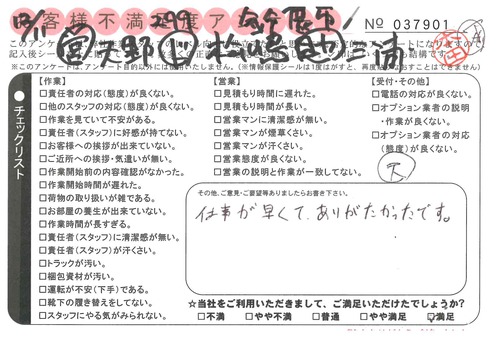 № 037901
このアンケートは
※当アンケートは、アンケート目的以外には使用いたしません。(※情報保護シールは1度はがすと、再度
チェックリスト
【作業】
□責任者の対応(態度)が良くない。
□他のスタッフの対応(態度)が良くない。
□作業を見ていて不安がある。
□責任者(スタッフ)に好感が持てない。
□お客様への挨拶が出来ていない。
□ご近所への挨拶・気遣いが無い。
□作業開始前の内容確認がなかった。
□作業開始時間が遅れた。
□荷物の取り扱いが雑である。
□お部屋の養生が出来ていない。
□作業時間が長すぎる。
□責任者(スタッフ)に清潔感が無い。
□責任者(スタッフ)が汗くさい。
□トラックが汚い。
□梱包資材が汚い。
□運転が不安(下手)である。
□靴下の履き替えをしてない。
□スタッフにやる気がみられない。
【営業】
□見積もり時間に遅れた。
□見積もり時間が長い。
□営業マンに清潔感が無い。
□営業マンが煙草くさい。
□営業マンが汗くさい。
□営業態度が良くない。
□営業の説明と作業が一致してない。
【受付・その他】
□電話の対応が良くない。
□オプション業者の説明
・作業が良くない。
□オプション業者の対応
(態度)が良くない。
その他、ご意見・ご要望等ありましたらお書き下さい。
仕事が早くて、ありがたかったです。
☆当社をご利用いただきまして、ご満足いただけたでしょうか?
□不満 □やや不満 □普通 □やや満足 ☑満足